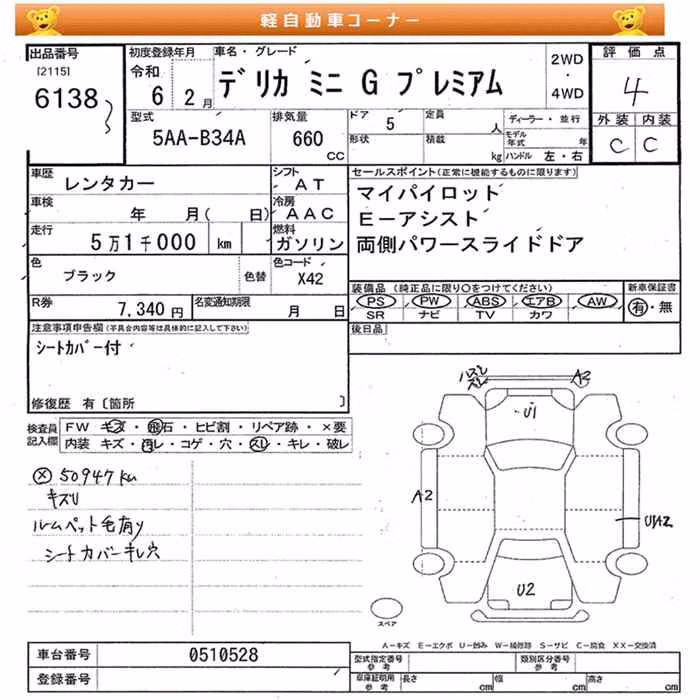 軽自動車コーナー
出品番号
[2115]
6138
初度登録年月
令和
6 2月
車名・グレード
デリカ ミニ G プレミアム
2WD
・
4WD
評価点
4
外装 内装
C C
型式
5AA-B34A
排気量
660
CC
ドア
5
定員
人
形状
積載
kg
ディーラー・並行
モデル
年式 年
ハンドル 左・右
車歴
レンタカー
シフト
AT
車検
年 月( 日)
冷房
AAC
走行
5万1千000 km
燃料
ガソリン
色
ブラック
色替
色コード
X42
R券
7,340円
名変通知期限
月 日
セールスポイント(正常に機能するものに限ります)
マイパイロット
E-アシスト
両側パワースライドドア
装備品 (純正品に限り○をつけてください)
PS PW ABS エアB AW
SR ナビ TV カワ
新車保証書
有・無
後日品
注意事項申告欄(不具合内容等は具体的に記入して下さい)
シートカバー付
修復歴 有〔箇所 〕
検査員
記入欄
FW キズ・飛石・ヒビ割・リペア跡・×要
内装 キズ・汚レ・コゲ・穴・スレ・キレ・破レ
ⓧ 50947km
キズU
ルームペット毛有り
シートカバーキレ穴
A2
U1
A2
U1A2
U2
スペア
A-キズ E-エクボ U-凹み W-補修跡 S-サビ C-腐食 XX-交換済
車台番号
0510528
登録番号
型式指定番号
参考
類別区分番号
参考
車庫証明用
参考
長さ cm
幅 cm
高さ cm